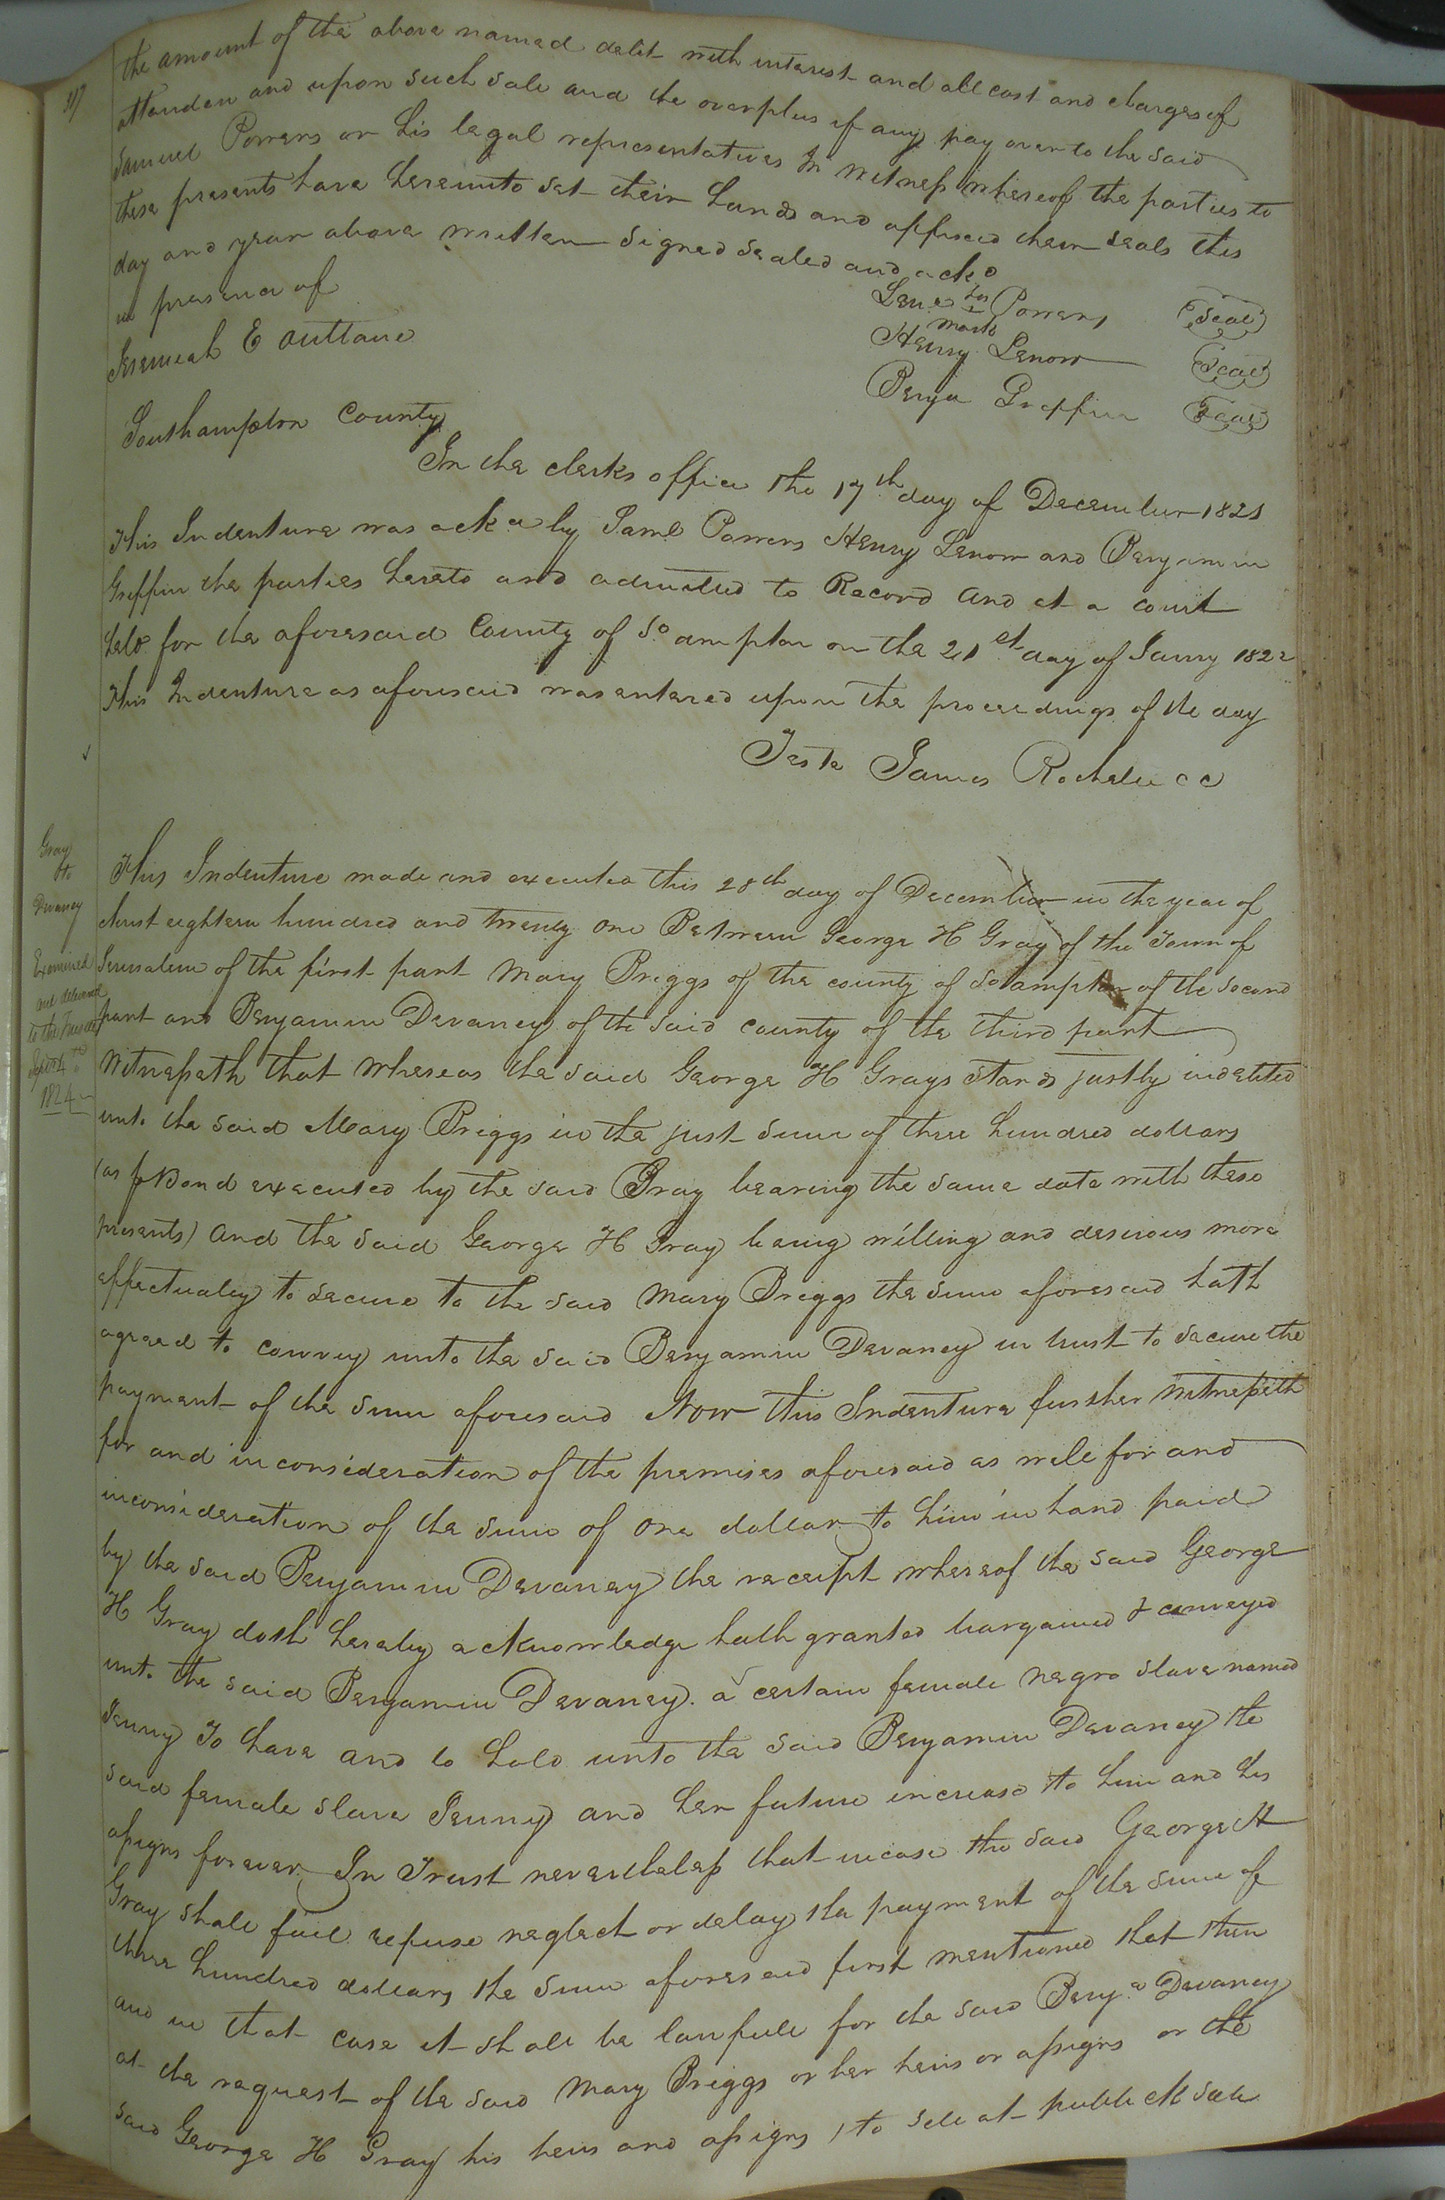 317
the amount of the above named debt with interest and all cost and charges of
attenden and upon such sale and the overplus if any pay over to the said
Samuel Powers or his legal representatives In Witness whereof the parties to
these presents have hereunto set their hands and affixed their seals this
day and year above written Signed sealed and ackd
in presence of
Jeremiah E Outland
his
Powers Seal
mark
Henry Lenow Seal
Benja Griffin Seal
Southampton County
In the clerks office the 17th day of December 1821
This Indenture was ackd by Saml Powers Henry Lenow and Benjamin
Griffin the parties hereto and admitted to Record and at a court
held for the aforesaid County of So ampton on the 21st day of Jany 1822
This Indenture as aforesaid was entered upon the proceedings of the day
Teste James Rochelle CC
Gray
to
Devaney
Examined
and delivered
to the Trustee
Sept 4th
1824
This Indenture made and executed this 28th day of December in the year of
christ eighteen hundred and twenty one Between George H Gray of the Town of
Jerusalem of the first part Mary Briggs of the county of So ampton of the second
part and Benjamin Devaney of the said county of the third part
Witnesseth that whereas the said George H Grays stands justly indebted
unto the said Mary Briggs in the just sum of three hundred dollars
(as p Bond executed by the said Gray bearing the same date with these
presents) and the said George H Gray being willing and desirous more
effectually to secure to the said Mary Briggs the sum aforesaid hath
agreed to convey unto the said Benjamin Devaney in trust to secure the
payment of the sum aforesaid Now this Indenture further Witnesseth
for and in consideration of the premises aforesaid as well for and
in consideration of the sum of one dollar to him in hand paid
by the said Benjamin Devaney the receipt whereof the said George
H Gray doth hereby acknowledge hath granted bargained & conveyed
unto the said Benjamin Devaney. a certain female negro slave named
Jenny To have and to hold unto the said Benjamin Devaney the
said female slave Jenny and her future increase to him and his
assigns forever In Trust nevertheless that incase the said George H
Gray shall fail refuse neglect or delay the payment of the sum of
three hundred dollars the sum aforesaid first mentioned that then
and in that case it shall be lawfull for the said Benja Devaney
at the request of the said Mary Briggs or her heirs or assigns or the
said George H Gray his heirs and assigns, to sell at publick sale